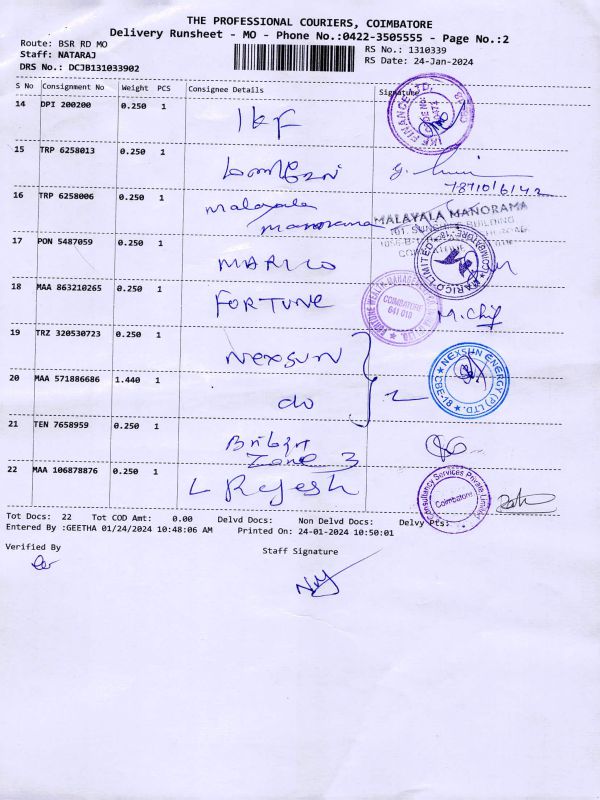 THE PROFESSIONAL COURIERS, COIMBATORE
Delivery Runsheet - MO - Phone No.:0422-3505555 - Page No.:2
Route: BSR RD MO
Staff: NATARAJ
DRS No.: DCJB131033902
RS No.: 1310339
RS Date: 24-Jan-2024
S No Consignment No Weight PCS Consignee Details Signature
14 DPI 200200 0.250 1 IKF
IKF FINANCE LTD.
15 TRP 6258013 0.250 1
16 TRP 6258006 0.250 1 Malayala
Manorama
MALAYALA MANORAMA
17 PON 5487059 0.250 1 MARICO
MARICO LIMITED COIMBATORE
18 MAA 863210265 0.250 1 FORTUNE
COIMBATORE
641 018
19 TRZ 320530723 0.250 1 Nexsun
NEXSUN ENERGY (P) LTD. CBE-18
20 MAA 571886686 1.440 1 do
21 TEN 7658959 0.250 1
Zone 3
22 MAA 106878876 0.250 1 L Rajesh
Consultancy Services Private Limited
Coimbatore
Tot Docs: 22 Tot COD Amt: 0.00 Delvd Docs: Non Delvd Docs: Delvy Pts:
Entered By :GEETHA 01/24/2024 10:48:06 AM Printed On: 24-01-2024 10:50:01
Verified By
Staff Signature